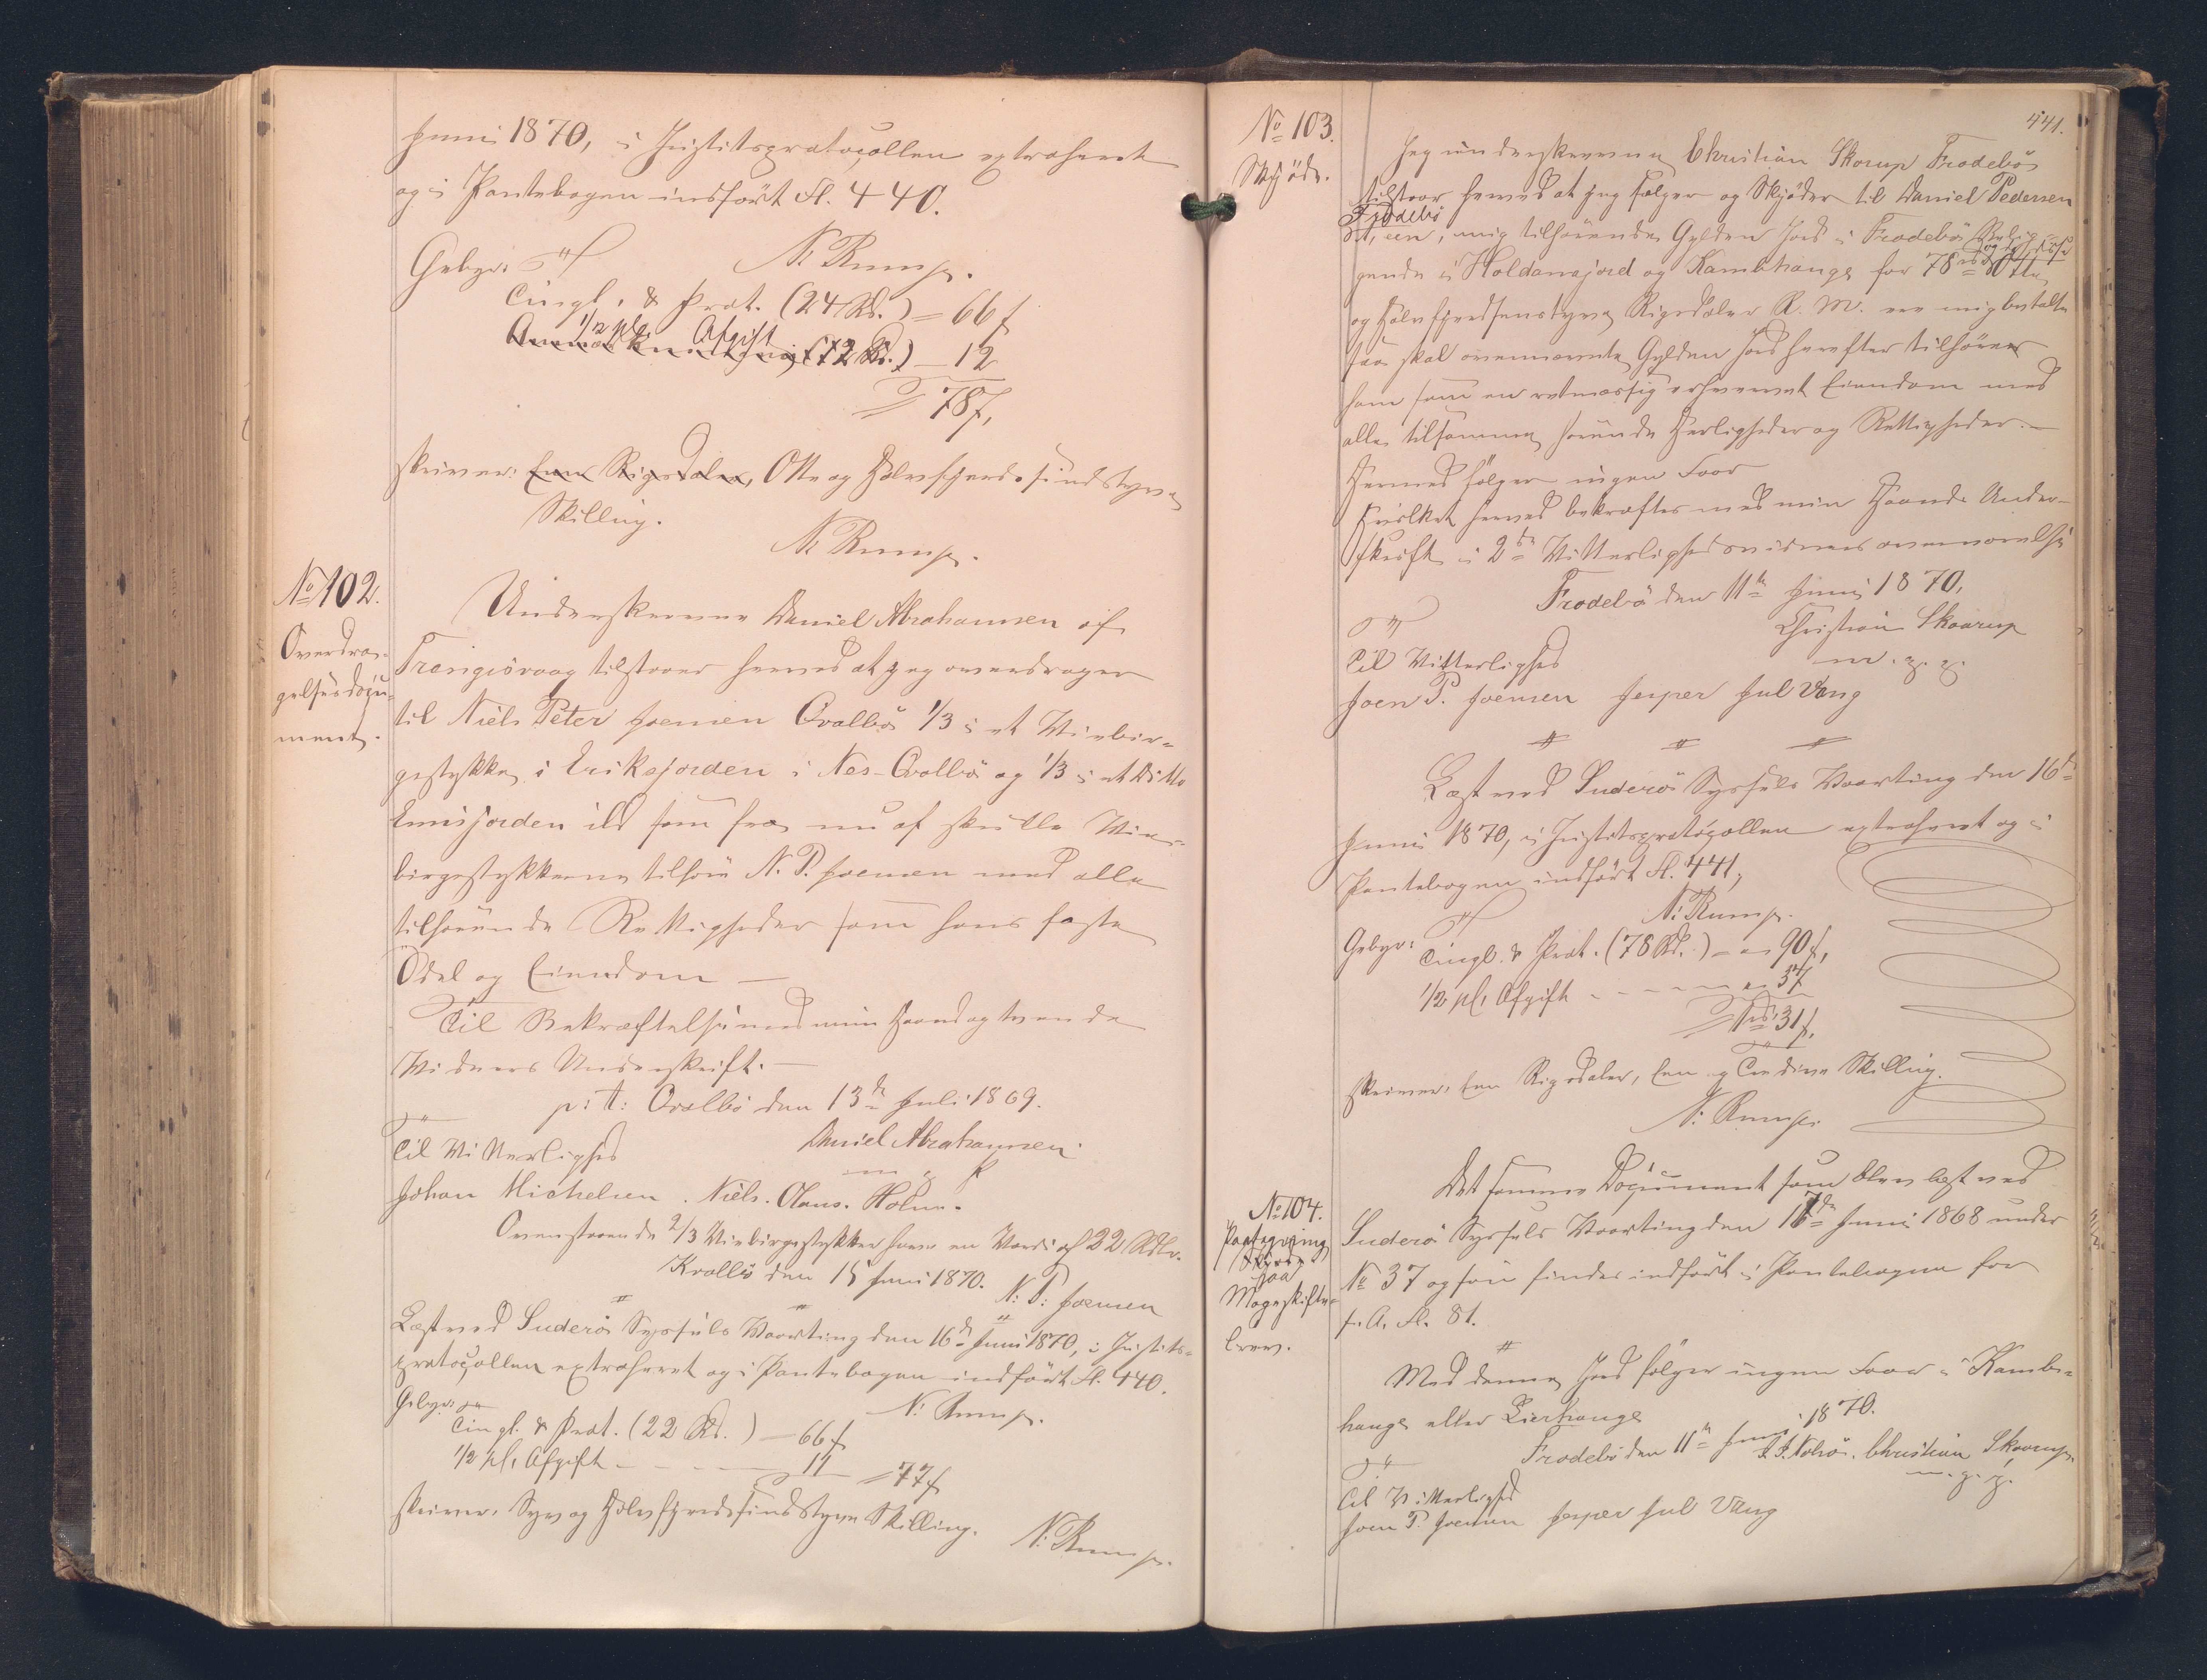 Juni 1870, i Justitsprotocollen extraheret
og i Pantebogen indført Fl. 440.
N: Rump.
Gebyr:
Tingl. & Prot. (24 Rd.) = 66 s
1/2 pCt. Afgift (72 Rd.) — 12
78 s,
skriver: Een Rigsdaler, Otte og Halvfjerdsindstyve
Skilling.
N: Rump.
No 102.
Overdra-
gelsesdocu-
ment.
Underskrevne Daniel Abrahamsen af
Trangisvaag tilstaaer herved at jeg overdrager
til Niels Peter Joensen Qvalbö 1/3 i et Winbir-
gestykke i Eriksjorden i Nes-Qvalbö og 1/3 i et Ditto
Ennisjorden ild som fra nu af skulle Win-
birgestykkerne tilhøre N. P. Joensen med alle
tilhørende Rettigheder som hans faste
Odel og Eiendom —
Til Bekræftelse med min Haand og tvende
Widners Underskrift. —
p: t: Qvalbö den 13de Juli 1869.
Daniel Abrahamsen
Til Witterlighed
Johan Michelsen. Niels. Claus. Holm.
Ovenstaaende 2/3 Winbirgestykker have en Værdi af 22 Rdlr.
Kvalbö den 15 Juni 1870.
N: P: Joensen
Læst ved Suderö Syssels Vaarting den 16de Juni 1870, i Justits-
protocollen extraheret og i Pantebogen indført Fl. 440.
N: Rump.
Gebyr:
Tingl. & Prot. (22 Rd.) — 66 s
1/2 pCt. Afgift - - - - 11 = 77 s
skriver: Syv og Halvfjerdsindstyve Skilling.
N: Rump.
441.
No 103.
Skjöde.
Jeg underskrevne Christian Skorup Frodebö
tilstaar herved at jeg sælger og Skjöder til Daniel Pedersen
Frodebö
st, een, mig tilhörende Gylden Jord i Frodebö Belig-
gende i Holdanajord og Kambhauge for 78 rd Otte
og Halvfjerdsenstyve Rigsdaler R. M. ere mig betalte
saa skal ovennævnte Gylden Jord herefter tilhöre
ham som en retmæssig erhvervet Eiendom med
alle tilsammen hörende Herligheder og Rettigheder. —
Hermed fölger ingen Foor
Hvilket herved bekræftes med min Haands Under-
skrift i 2de Vitterlighedsvidners overværelse
Frodebö den 11te Juni 1870.
Christian Skaarup
m. p. p.
Til Vitterlighed
Joen P. Joensen Jesper Jul Vang
Læst ved Suderö Syssels Vaarting den 16de
Juni 1870, i Justitsprotocollen extraheret og i
Pantebogen indført Fl. 441,
N: Rump.
Gebyr: Tingl. & Prot. (78 Rd.) — = 90 s,
1/2 pCt. Afgift - - - - 37
1 rd. 31 s.
skriver: Een Rigsdaler, Een og Tredive Skilling.
N: Rump.
No 104.
Paategning
paa
Mageskifte-
brev.
Det samme Document som blev læst ved
Suderö Syssels Vaarting den 17de Juni 1868 under
No 37 og som findes indført i Pantebogen for
s. A. Fl. 81.
Med denne Jord fölger ingen Foor i Kamb-
hauge eller Lierhauge
Frodebö den 11te Juni 1870.
Christian Skaarup
m. p. p.
Til Vitterlighed
Joen P. Joensen Jesper Jul Vang